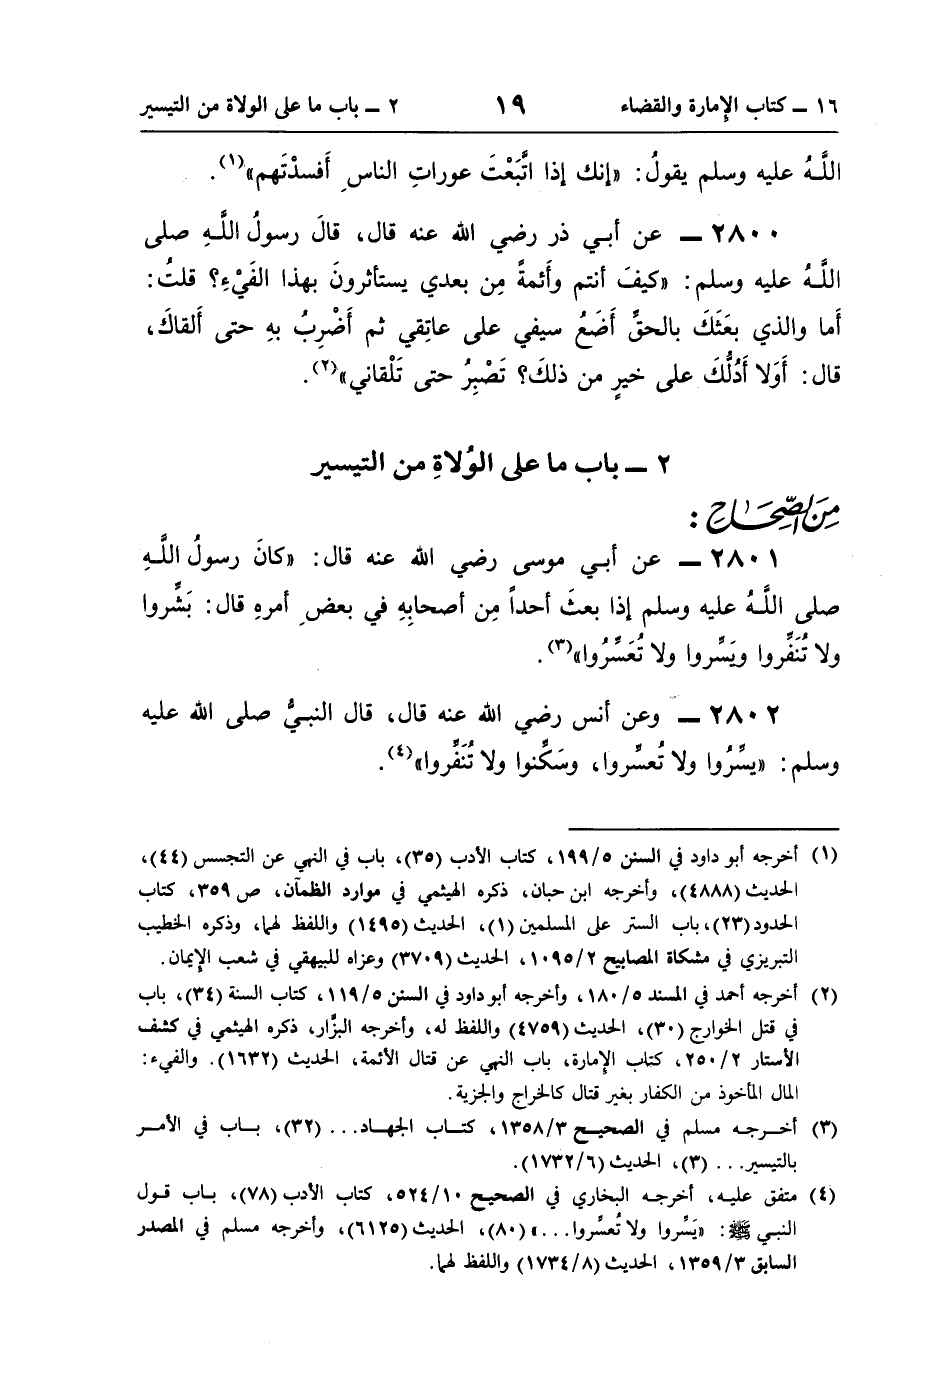 ١٦ ـ كتاب الإمارة والقضاء ١٩ ٢ ـ باب ما على الولاة من التيسير
اللَّـهُ عليه وسلم يقولُ: «إنك إذا اتَّبَعْتَ عوراتِ الناسِ أَفسدْتَهم»(١).
٢٨٠٠ ـ عن أبـي ذر رضي الله عنه قال، قالَ رسولُ اللَّـهِ صلى
اللَّـهُ عليه وسلم: «كيفَ أنتم وأَئمةً مِن بعدي يستأثرونَ بهذا الفَيْءِ؟ قلتُ:
أما والذي بعَثَكَ بالحقِّ أَضَعُ سيفي على عاتِقي ثم أَضْرِبُ بهِ حتى أَلقاكَ،
قال: أَوَلا أَدُلُّكَ على خيرٍ من ذلكَ؟ تَصْبِرُ حتى تَلْقاني»(٢).
٢ ـ باب ما على الوُلاةِ من التيسير
مِنَ الصِّحَاحِ :
٢٨٠١ ـ عن أبـي موسى رضي الله عنه قال: «كانَ رسولُ اللَّـهِ
صلى اللَّـهُ عليه وسلم إذا بعثَ أحداً مِن أصحابِهِ في بعضِ أمرهِ قال: بَشِّروا
ولا تُنَفِّروا ويَسِّروا ولا تُعَسِّرُوا»(٣).
٢٨٠٢ ـ وعن أنس رضي الله عنه قال، قال النبـيُّ صلى الله عليه
وسلم: «يسِّرُوا ولا تُعسِّروا، وسَكِّنوا ولا تُنَفِّروا»(٤).
(١) أخرجه أبو داود في السنن ١٩٩/٥، كتاب الأدب (٣٥)، باب في النهي عن التجسس (٤٤)،
الحديث (٤٨٨٨)، وأخرجه ابن حبان، ذكره الهيثمي في موارد الظمآن، ص ٣٥٩، كتاب
الحدود (٢٣)، باب الستر على المسلمين (١)، الحديث (١٤٩٥) واللفظ لهما، وذكره الخطيب
التبريزي في مشكاة المصابيح ١٠٩٥/٢، الحديث (٣٧٠٩) وعزاه للبيهقي في شعب الإيمان.
(٢) أخرجه أحمد في المسند ١٨٠/٥، وأخرجه أبو داود في السنن ١١٩/٥، كتاب السنة (٣٤)، باب
في قتل الخوارج (٣٠)، الحديث (٤٧٥٩) واللفظ له، وأخرجه البزَّار، ذكره الهيثمي في كشف
الأستار ٢٥٠/٢، كتاب الإمارة، باب النهي عن قتال الأئمة، الحديث (١٦٣٢). والفيء:
المال المأخوذ من الكفار بغير قتال كالخراج والجزية.
(٣) أخـرجـه مسلم في الصحيـح ١٣٥٨/٣، كتـاب الجهـاد... (٣٢)، بـاب في الأمـر
بالتيسير... (٣)، الحديث (١٧٣٢/٦).
(٤) متفق عليـه، أخرجـه البخاري في الصحيح ٥٢٤/١٠، كتاب الأدب (٧٨)، بـاب قـول
النبـي ﷺ: «يَسِّروا ولا تُعسِّروا...» (٨٠)، الحديث (٦١٢٥)، وأخرجه مسلم في المصدر
السابق ١٣٥٩/٣، الحديث (١٧٣٤/٨) واللفظ لهما.